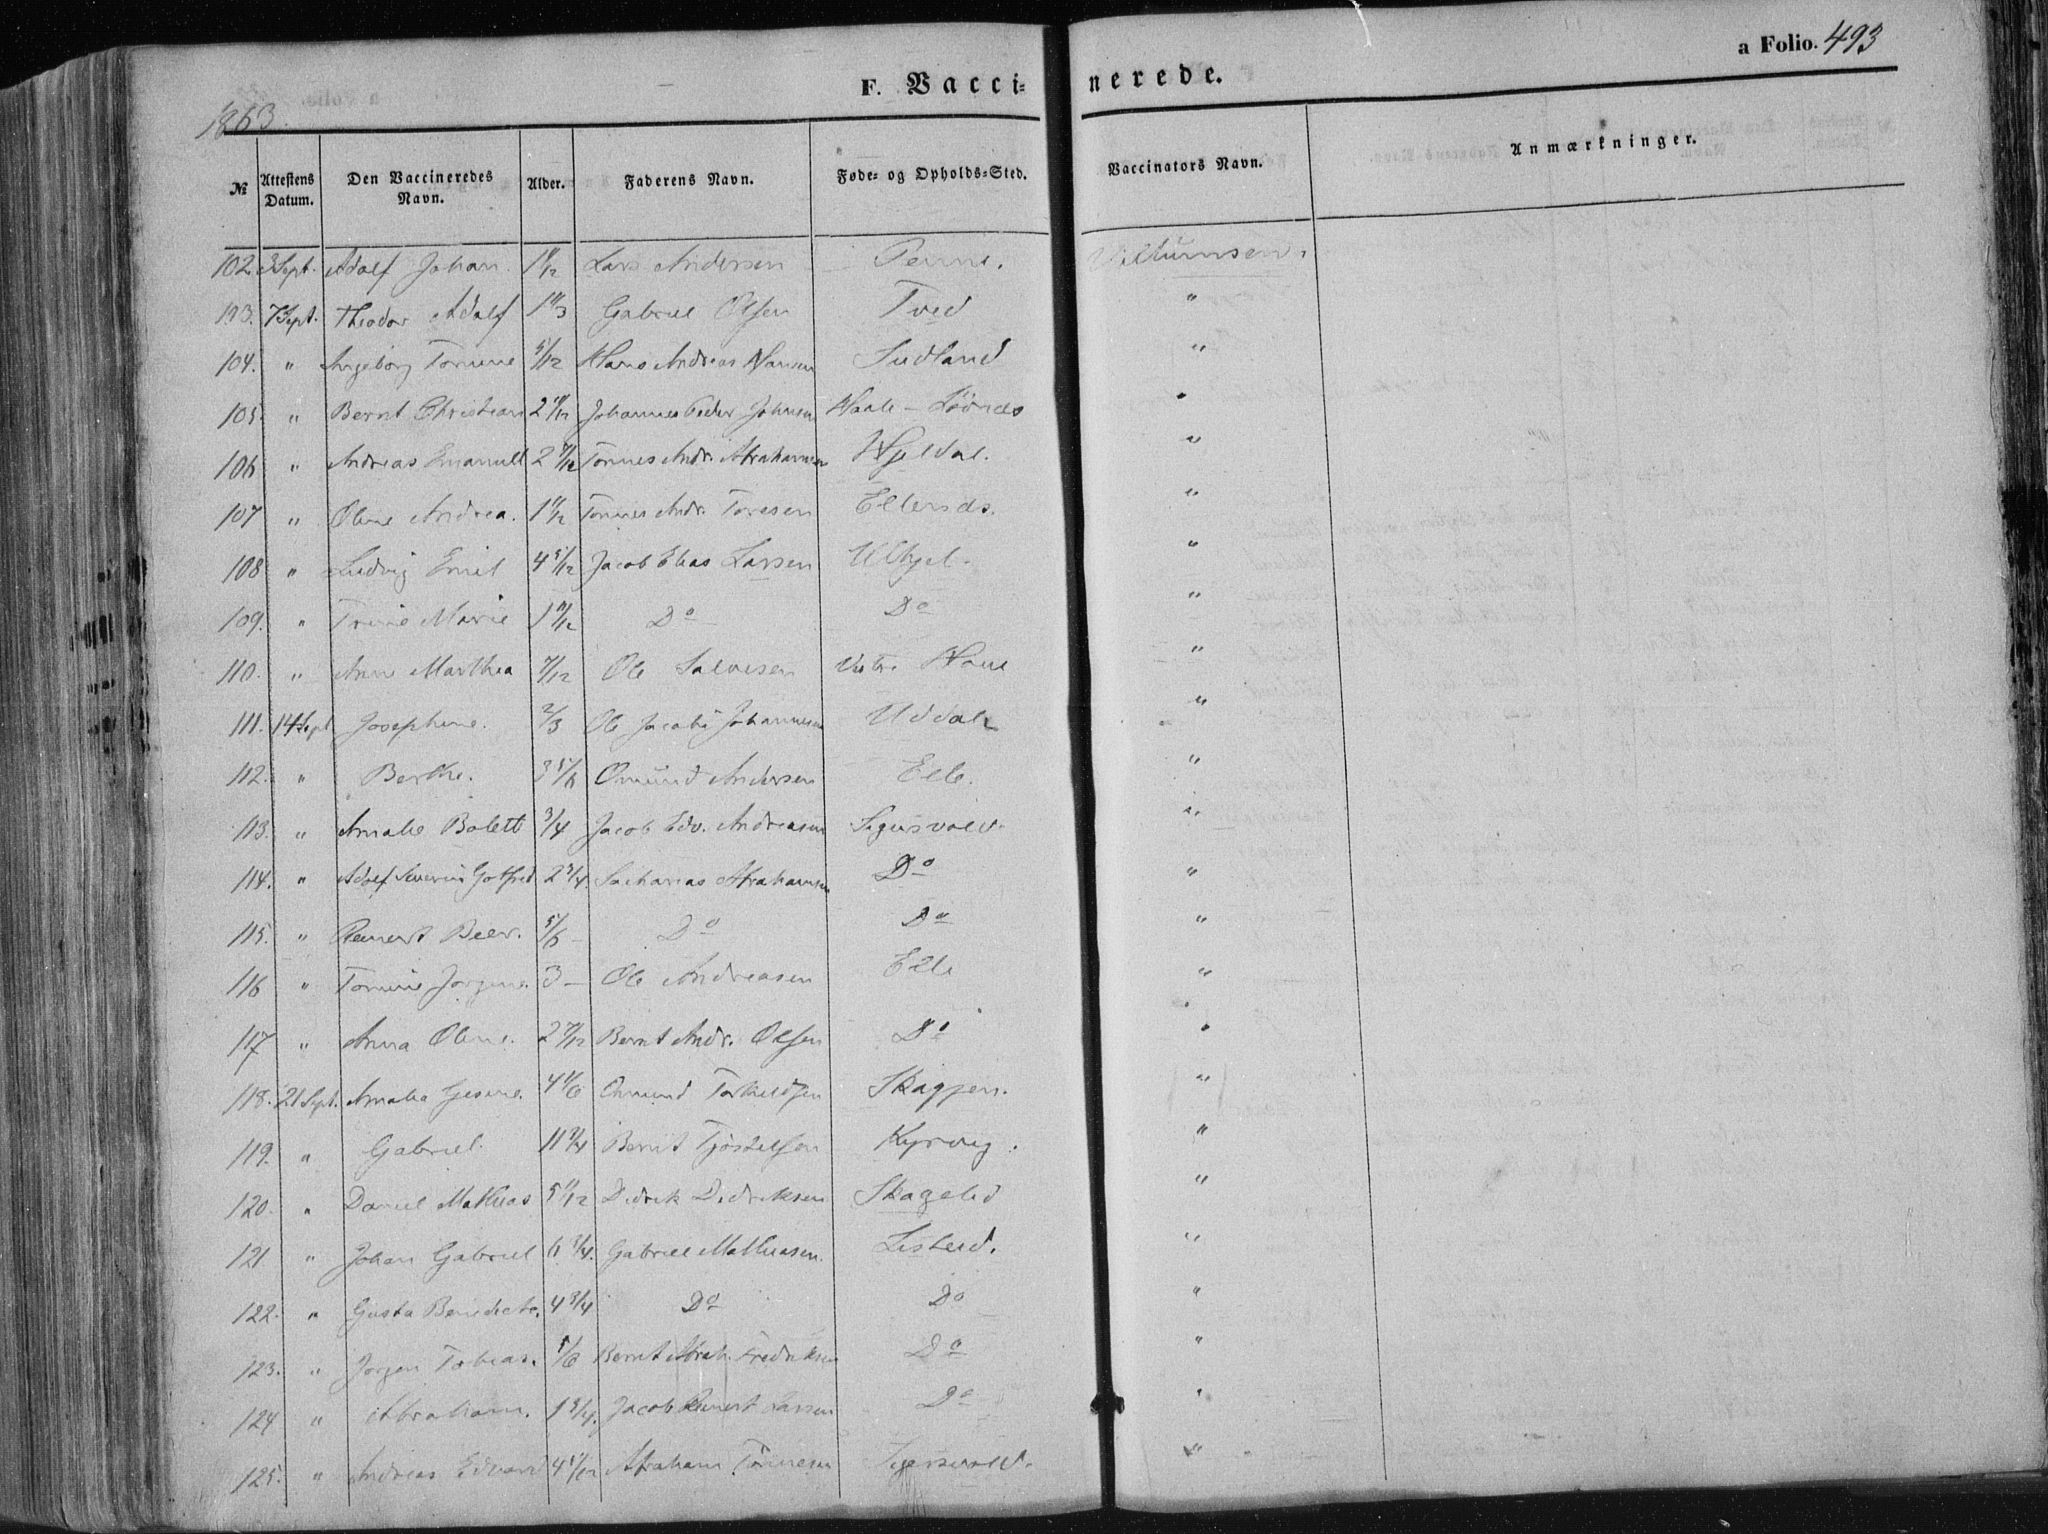 a Folio. 493
F. Vaccinerede.
1863.
№ Attestens Datum. Den Vaccineredes Navn. Alder. Faderens Navn. Føde- og Opholds-Sted. Vaccinators Navn. Anmærkninger.
102. 3 Sept. Adolf Johan. 1 11/12 Lars Andersen Penne.
103. 7 Sept. Theodor Adolf Gabriel Olsen Tved "
104. " Ingeborg Tomine 5/12 Hans Andreas Hansen Sudland "
105. " Bernt Christian Johannes Peder Johnsen "
106. " Andreas Emanuel 2 7/12 Tønnes Andr. Abrahamsen "
107 " Oline Andrea. 1 11/12 Tønnes Andr. Toresen "
108 " Ludvig Emil 4 5/12 Jacob Elias Larsen "
109. " Trine Marie 1 11/12 Do Do "
110. " Anne Marthea 7/12 Ole Salvesen "
111. 14 Sept Josephine. 2/3 Ole Jacob Johannesen Uddal "
112. " Berthe. 3 5/6 Omund Andersen Elle. "
113. " Amalie Bolett 3/4 Jacob Edv. Andreasen Sigersvold. "
114. " Adolf Severin Gotfred 2 3/4 Sacharias Abrahamsen Do "
115. " Reinert Beer. 5/6 Do Do "
116 " Tomine Jorgine. 3 Ole Andreasen Elle "
117 " Anna Oline. 2 7/12 Bernt Andr. Olsen Do "
118. 21 Sept. Amalia Gesine. 4 1/6 Omund Torkildsen Skagjen. "
119. " Gabriel. 11 3/4 Bernt Tjøstelsen Kyrvig. "
120. " Daniel Mathias 5 11/12 Didrik Didriksen Skagelid "
121 " Johan Gabriel 6 3/4. Gabriel Mathiasen. Listeid. "
122. " Gusta Benedicte. 4 3/4 Do Do "
123. " Jorgen Tobias. 5/6 Bernt Abrah. Fredriksen Do "
124 " Abraham. 1 3/4. Jacob Reinert Larsen Do "
125. " Andreas Edvard Abraham Tønnesen Sigersvold. "